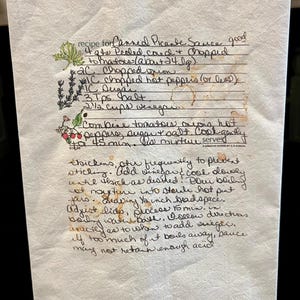 recipe for Canned Picante Sauce good
4 qts Peeled, cored & Chopped
tomatoes (about 24 lg)
2C. Chopped onion
1C. chopped hot peppers (or less)
1C Sugar
3 Tps Salt
2 1/2 cups vinegar
Combine tomatoes, onions, hot
peppers, sugar & salt. Cook gently
for 45 min. As mixture serves
thickens, stir frequently to prevent
sticking. Add vinegar & cook slowly
until thick as desired. Pour boiling
hot mixture into sterile hot pint
jars. Leaving 1/4 inch headspace.
Adjust lids, process 15 min. in
boiling water bath. Follow directions
exactly as to when to add vinegar.
if too much of it boils away, sauce
may not retain enough acid